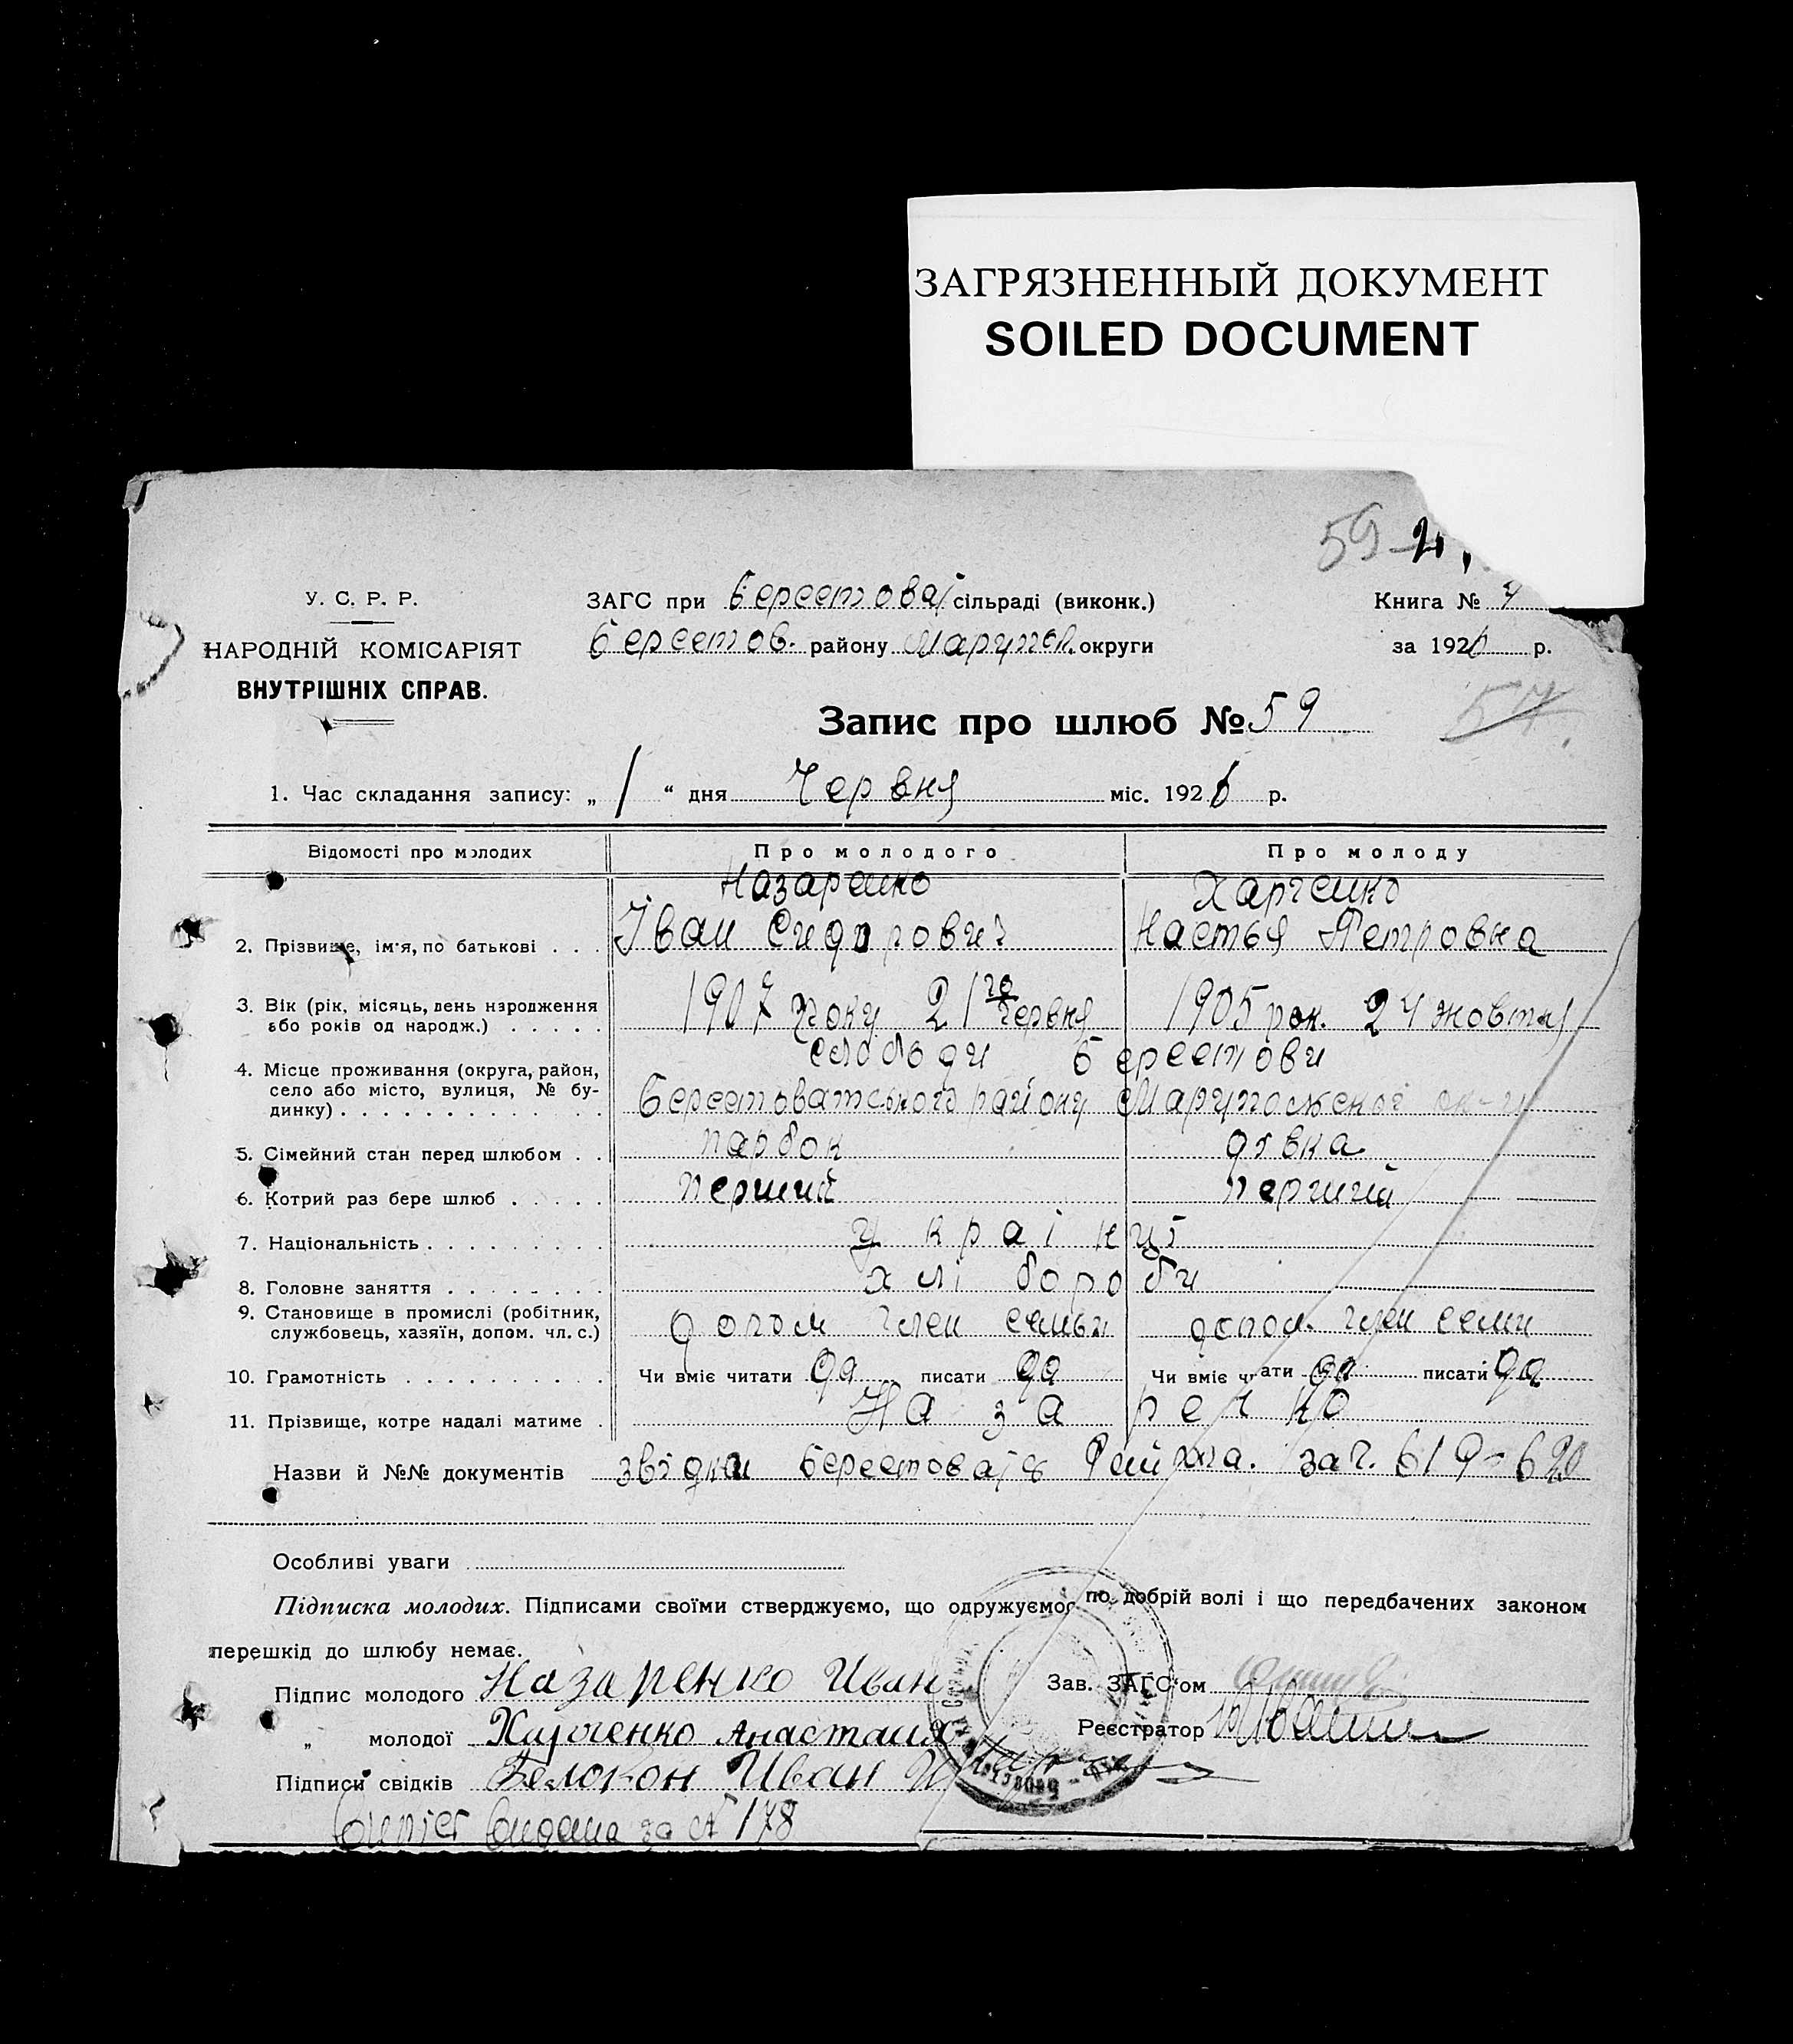 ЗАГРЯЗНЕННЫЙ ДОКУМЕНТ
SOILED DOCUMENT
59
У. С. Р. Р.
НАРОДНІЙ КОМІСАРІЯТ
ВНУТРІШНІХ СПРАВ.
ЗАГС при Берестовај сільраді (виконк.)
Берестов. району Марупол. округи
Книга №
за 1926 р.
57
Запис про шлюб № 59
1. Час складання запису: „ 1 “ дня Червня міс. 1926 р.
Відомості про молодих Про молодого Про молоду
Назаренко Харченко
2. Прізвище, ім'я, по батькові . . . Іван Сидорович Настья Петровна
3. Вік (рік, місяць, день народження або років од народж.) . . . . . 1907 року 21го червня 1905 рок. 24 жовтня
слободи Берестови
4. Місце проживання (округа, район, село або місто, вулиця, № будинку) . . . . . . . . . . . . Берестоватського району Марупольскої ок-и
5. Сімейний стан перед шлюбом . . парбок дівка
6. Котрий раз бере шлюб . . . . . перший перший
7. Національність . . . . . . . . . українці
8. Головне заняття . . . . . . . . хліборобы
9. Становище в промислі (робітник, службовець, хазяїн, допом. чл. с.) допом член семьи допом. член семи
10. Грамотність . . . . . . . . . . Чи вміє читати да писати да Чи вміє читати да писати да
11. Прізвище, котре надалі матиме . Назаренко
Назви й №№ документів звідки 619-620
Особливі уваги
Підписка молодих. Підписами своїми стверджуємо, що одружуємос по добрій волі і що передбачених законом
перешкід до шлюбу немає.
Підпис молодого Назаренко Иван Зав. ЗАГС'ом
„ молодої Харченко Анастасия Реєстратор
Підписи свідків Белокон Иван
видана за № 178